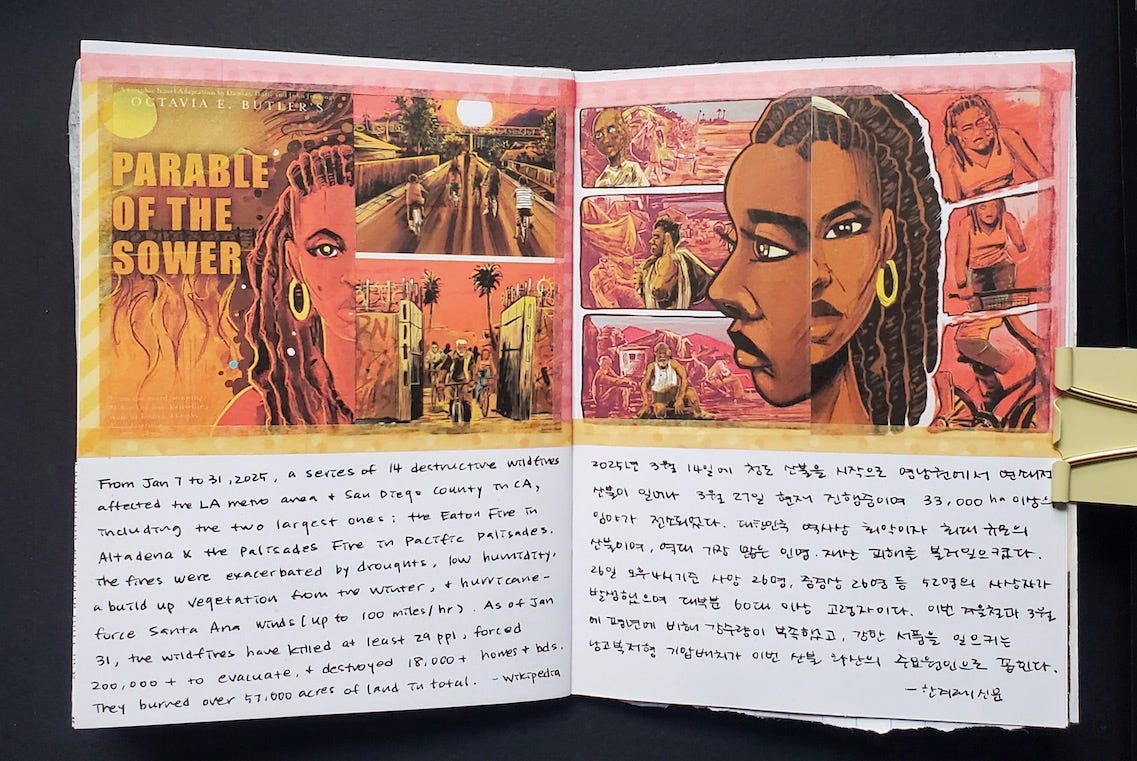 A Graphic Novel Adaptation by Damian Duffy and John Jennings
OCTAVIA E. BUTLER'S
PARABLE
OF THE
SOWER
From Jan 7 to 31, 2025, a series of 14 destructive wildfires
affected the LA metro area & San Diego County in CA,
including the two largest ones: the Eaton Fire in
Altadena & the Palisades Fire in Pacific Palisades.
The fires were exacerbated by droughts, low humidity,
a build up vegetation from the winter, & hurricane-
force Santa Ana winds (up to 100 miles/hr). As of Jan
31, the wildfires have killed at least 29 ppl, forced
200,000+ to evacuate, & destroyed 18,000+ homes & bds.
They burned over 57,000 acres of land in total. - Wikipedia
2025년 3월 14일에 청도 산불을 시작으로 영남권에서 연쇄적
산불이 일어나 3월 27일 현재 진행중이며 33,000 ha 이상의
임야가 전소되었다. 대한민국 역사상 최악이자 최대 규모의
산불이며, 역대 가장 많은 인명·재산 피해를 불러일으켰다.
26일 오후 4시기준 사망 26명, 중경상 26명 등 52명의 사상자가
발생했으며 대부분 60대 이상 고령자이다. 이번 겨울철과 3월
에 평년에 비해 강수량이 부족했고, 강한 서풍을 일으키는
남고북저형 기압배치가 이번 산불 확산의 주요원인으로 꼽힌다.
- 한겨레신문